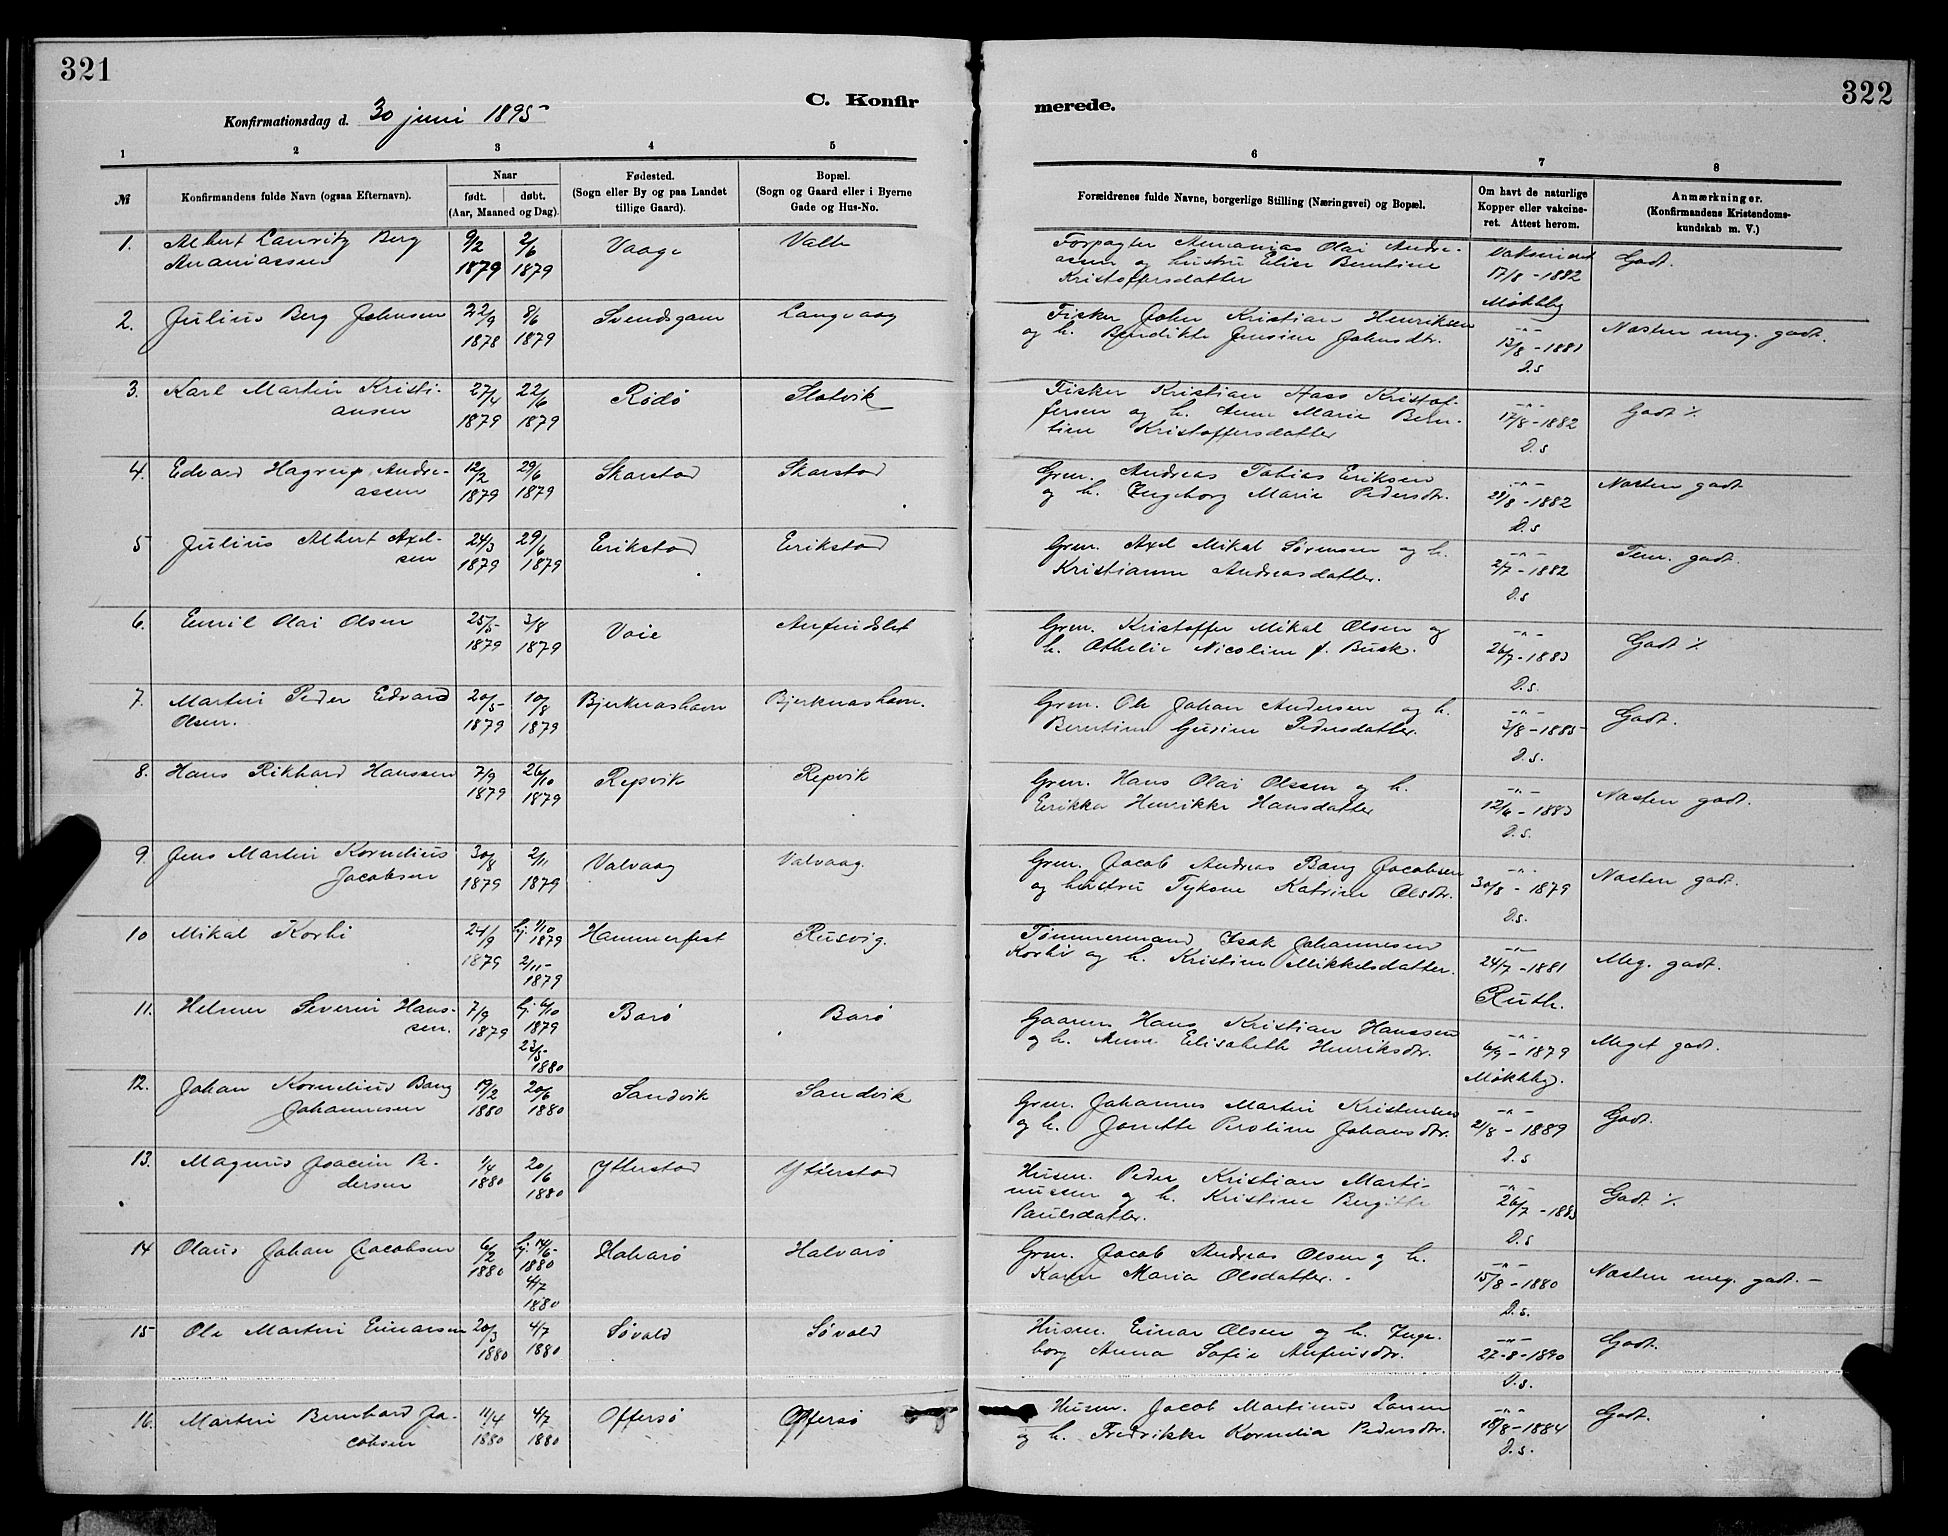 321
322
C. Konfir
merede.
Konfirmationsdag d. 30 juni 1895
1
2
3
4
5
6
7
8
№
Konfirmandens fulde Navn (ogsaa Efternavn).
Naar
født. døbt.
(Aar, Maaned og Dag).
Fødested.
(Sogn eller By og paa Landet
tillige Gaard).
Bopæl.
(Sogn og Gaard eller i Byerne
Gade og Hus-No.
Forældrenes fulde Navne, borgerlige Stilling (Næringsvei) og Bopæl.
Om havt de naturlige
Kopper eller vakcine-
ret. Attest herom.
Anmærkninger.
(Konfirmandens Kristendoms-
kundskab m. V.)
1. Albert Lauritz Berg
Ananiassen
9/2
1879
2/6
1879
Vaage
Valle
Forpagter Annanias Olai Andre-
assen og hustru Elise Berntine
Kristoffersdatter
Vaksineret
17/8 - 1882
Møkkby
Godt.
2. Julius Berg Johnsen
22/9
1878
8/6
1879
Svendsgam
Langvaag
Fisker John Kristian Henriksen
og h. Bendikte Jensine Johnsdtr.
-"-
13/8 - 1881
D.s
Næsten meg. godt.
3. Karl Martin Kristi-
ansen
27/4
1879
22/6
1879
Rødø
Slotvik
Fisker Kristian Hass Kristof-
fersen og h. Anne Marie Bern-
tine Kristoffersdatter
-"-
17/8 - 1882
D.s
Godt ⁒
4. Edvard Hagrup Andre-
assen
12/2
1879
29/6
1879
Skarstad
Skarstad
Grm. Andreas Tobias Eriksen
og h. Ingeborg Marie Pedersdtr.
-"-
28/8 - 1882
D.s
Næsten godt
5 Julius Albert Axel-
sen
24/3
1879
29/6
1879
Erikstad
Erikstad
Grm. Axel Mikal Sørensen og h.
Kristianne Andreasdatter.
-"-
2/7 - 1882
D.s
Tem. godt.
6. Emil Olai Olsen
25/5
1879
3/8
1879
Voie
Anfindslet
Grm. Kristoffer Mikal Olsen og
h. Othelie Nicoline f. Busk.
-"-
26/7 - 1883
D.s.
Godt ⁒
7. Martin Peder Edvard
Olsen.
20/5
1879
10/8
1879
Bjerknashavn
Bjerknashavn.
Grm. Ole Johan Andersen og h.
Berntine Gusine Pedersdatter.
-"-
3/8 - 1885
D.s.
Godt.
8. Hans Rikhard Hanssen
7/9
1879
26/10
1879
Repvik
Repvik
Grm. Hans Olai Olssen og h.
Erikka Henrikke Hansdatter
-"-
12/6 - 1883
D.s.
Næsten godt.
9. Jens Martin Kornelius
Jacobsen
30/8
1879
2/11
1879
Valvaag
Valvaag.
Grm. Jacob Andreas Bang Jacobsen
og hustru Tykone Katrine Olsdtr.
-"-
30/8 - 1879
D.s.
Næsten godt.
10 Mikal Korhi
24/9
1879
hj. 1/10
1879
2/11-
1879
Hammerfest
Rusvig.
Tømmermand Isak Johannesen
Korhi og h. Kristine Mikkelsdatter.
-"-
24/7 - 1881
Ruth.
Meg. godt.
11. Helmer Severin Hans-
sen.
7/9
1879
hj. 6/10
1879
23/5-
1880
Barø
Barø
Gaarm. Hans Kristian Hanssen
og h. Anne Elisabeth Henriksdtr.
-"-
6/9 - 1879
Møkkby.
Meget godt.
12. Johan Kornelius Bang
Johannesen
19/2
1880
20/6
1880
Sandvik
Sandvik
Grm. Johannes Martin Kristensen
og h. Jonette Peroline Johansdtr.
-"-
21/8 - 1889
D.s
Godt.
13. Magnus Joacim Pe-
dersen
1/4
1880
20/6
1880
Ytterstad
Ytterstad
Husm. Peder Kristian Marti-
nussen og h. Kristine Bergitte
Paulsdatter.
-"-
26/7 - 1883
D.s
Godt ⁒
14 Olaus Johan Jacobsen
6/2
1880
hj. 14/5-
1880
4/7
1880
Halvarø
Halvarø
Grm. Jacob Andreas Olsen og h.
Karen Maria Olsdatter. -
-"-
15/8 - 1880
D.s.
Næsten meg. godt. -
15 Ole Martin Einarsen
20/3
1880
4/7
1880
Søvold
Søvold
Husm. Einar Olsen og h. Inge-
borg Anna Sofie Anfinsdtr.
-"-
27-8-1890
D.s.
Godt.
16. Martin Bernhard Ja-
cobsen
11/4
1880
4/7
1880
Offersø
Offersø
Husm. Jacob Martinus Larsen
og h. Fredrikke Kornelia Pedersdtr.
-"-
18/8 - 1884
D.s.
Godt.